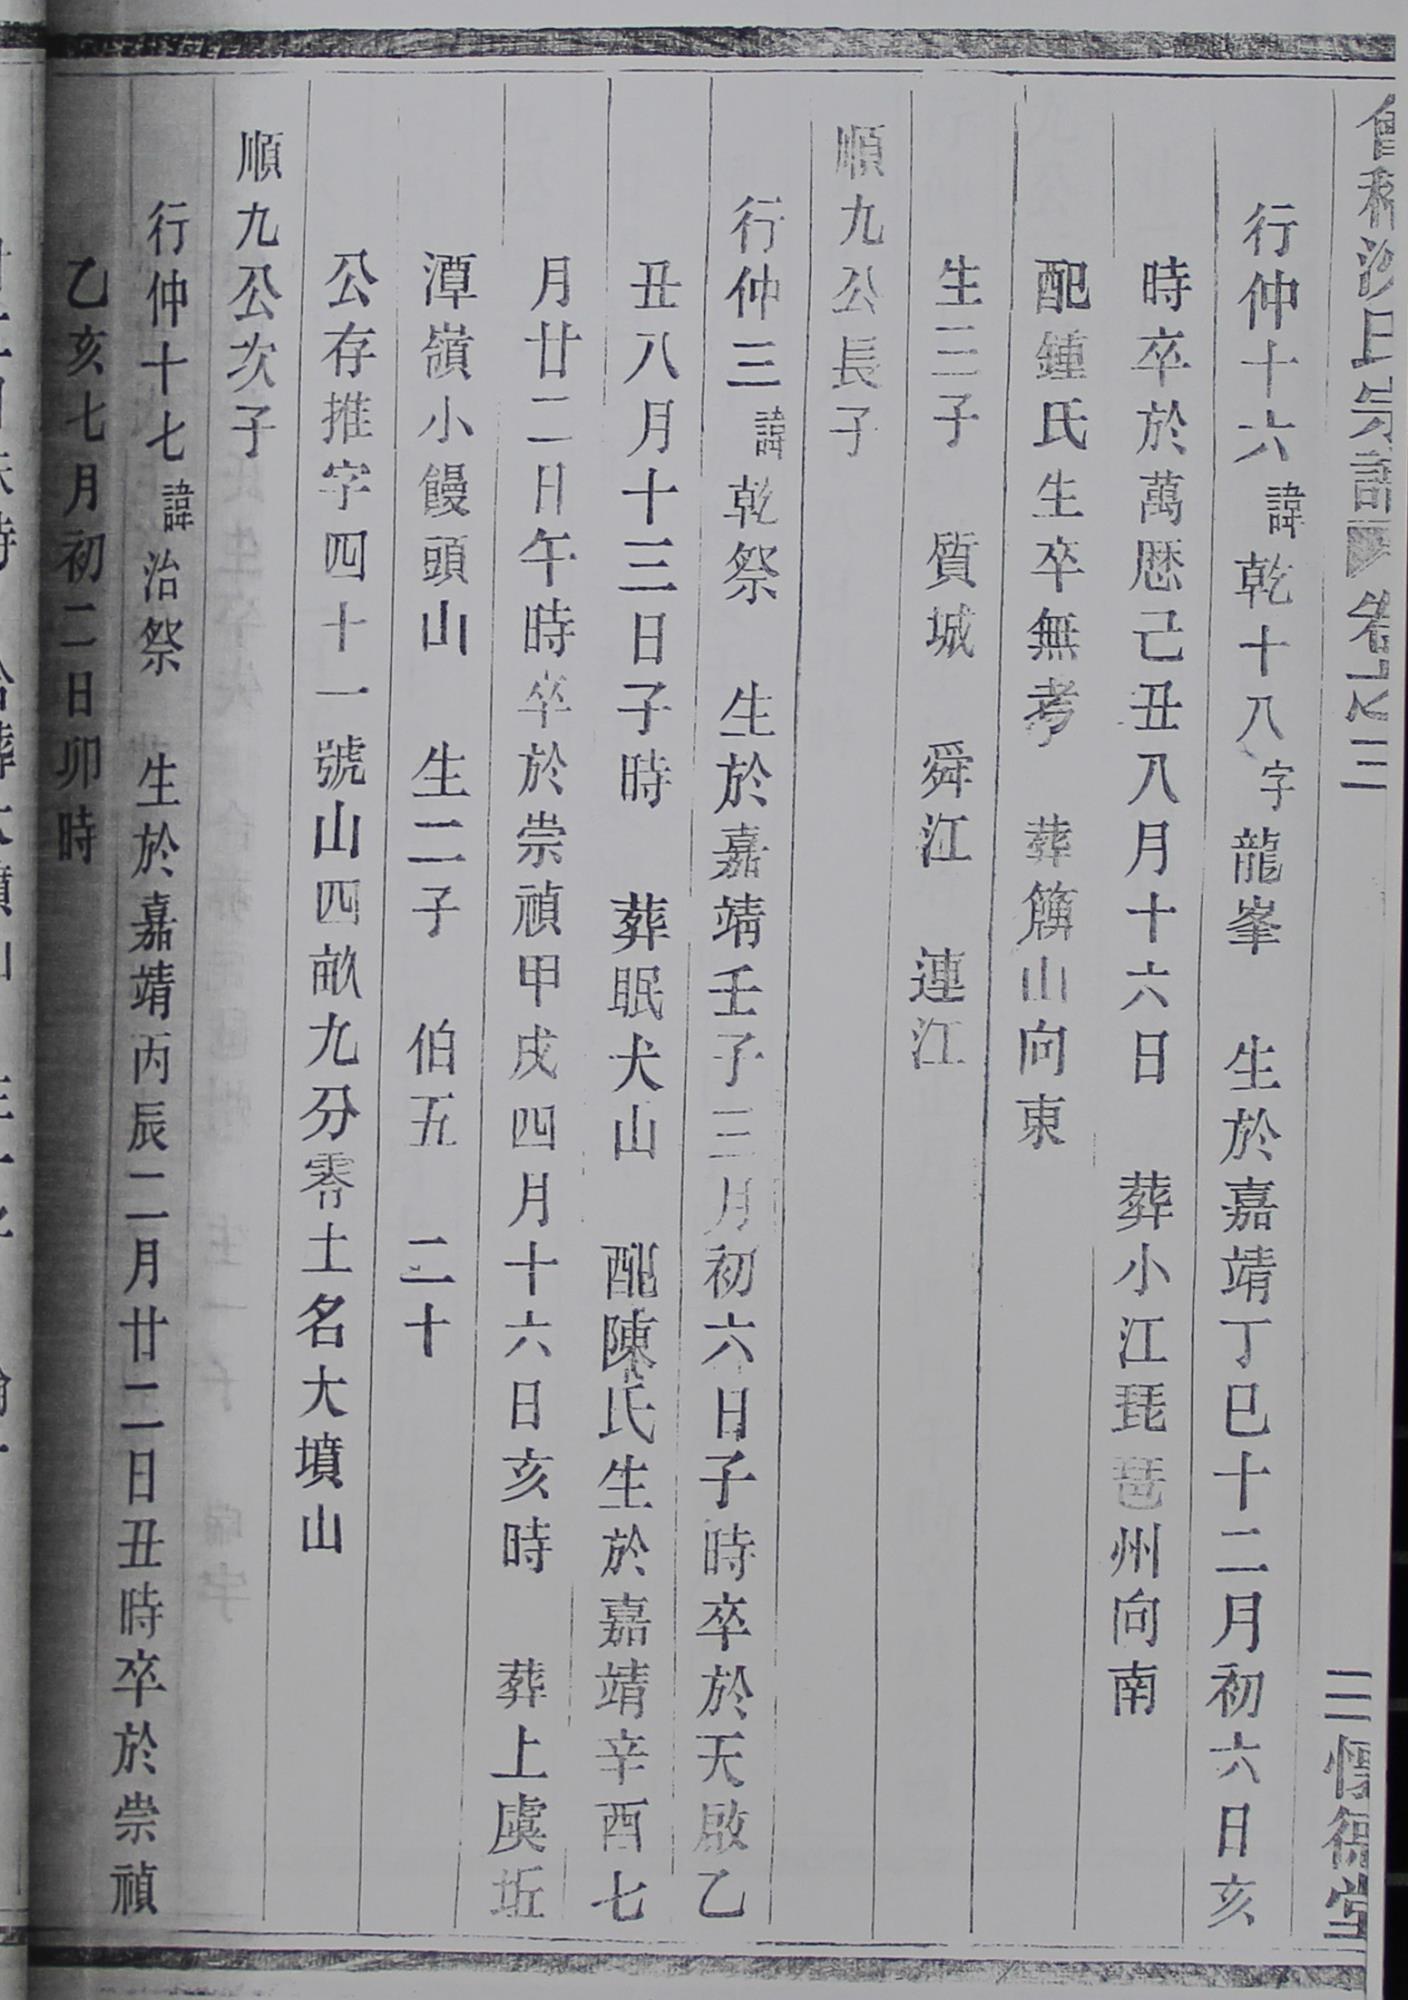 會稽沈氏宗譜 卷之三 三
行仲十六諱乾十八字龍峯 生於嘉靖丁巳十二月初六日亥
時卒於萬厯己丑八月十六日 葬小江琵琶州向南
配鍾氏生卒無考 葬籐山向東
生三子 質城 舜江 連江
順九公長子
行仲三諱乾祭 生於嘉靖壬子三月初六日子時卒於天啟乙
丑八月十三日子時 葬眠犬山 配陳氏生於嘉靖辛酉七
月廿二日午時卒於崇禎甲戌四月十六日亥時 葬上虞坵
潭嶺小饅頭山 生二子 伯五 二十
公存推字四十一號山四畝九分零土名大墳山
順九公次子
行仲十七諱治祭 生於嘉靖丙辰二月廿二日丑時卒於崇禎
乙亥七月初二日卯時